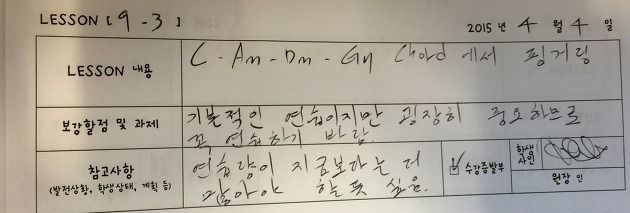 LESSON [ 9-3 ] 2015년 4월 4일
LESSON 내용 C - Am - Dm - G7 Chord 에서 핑거링
보강할점 및 과제 기본적인 연습이지만 굉장히 중요하므로
꼭 연습하기 바람.
참고사항 연습량이 지금보다는 더
(발전상황, 학생상태, 계획 등) 많아야 할듯 싶음.
수강증발부
학생
사인
원장 인